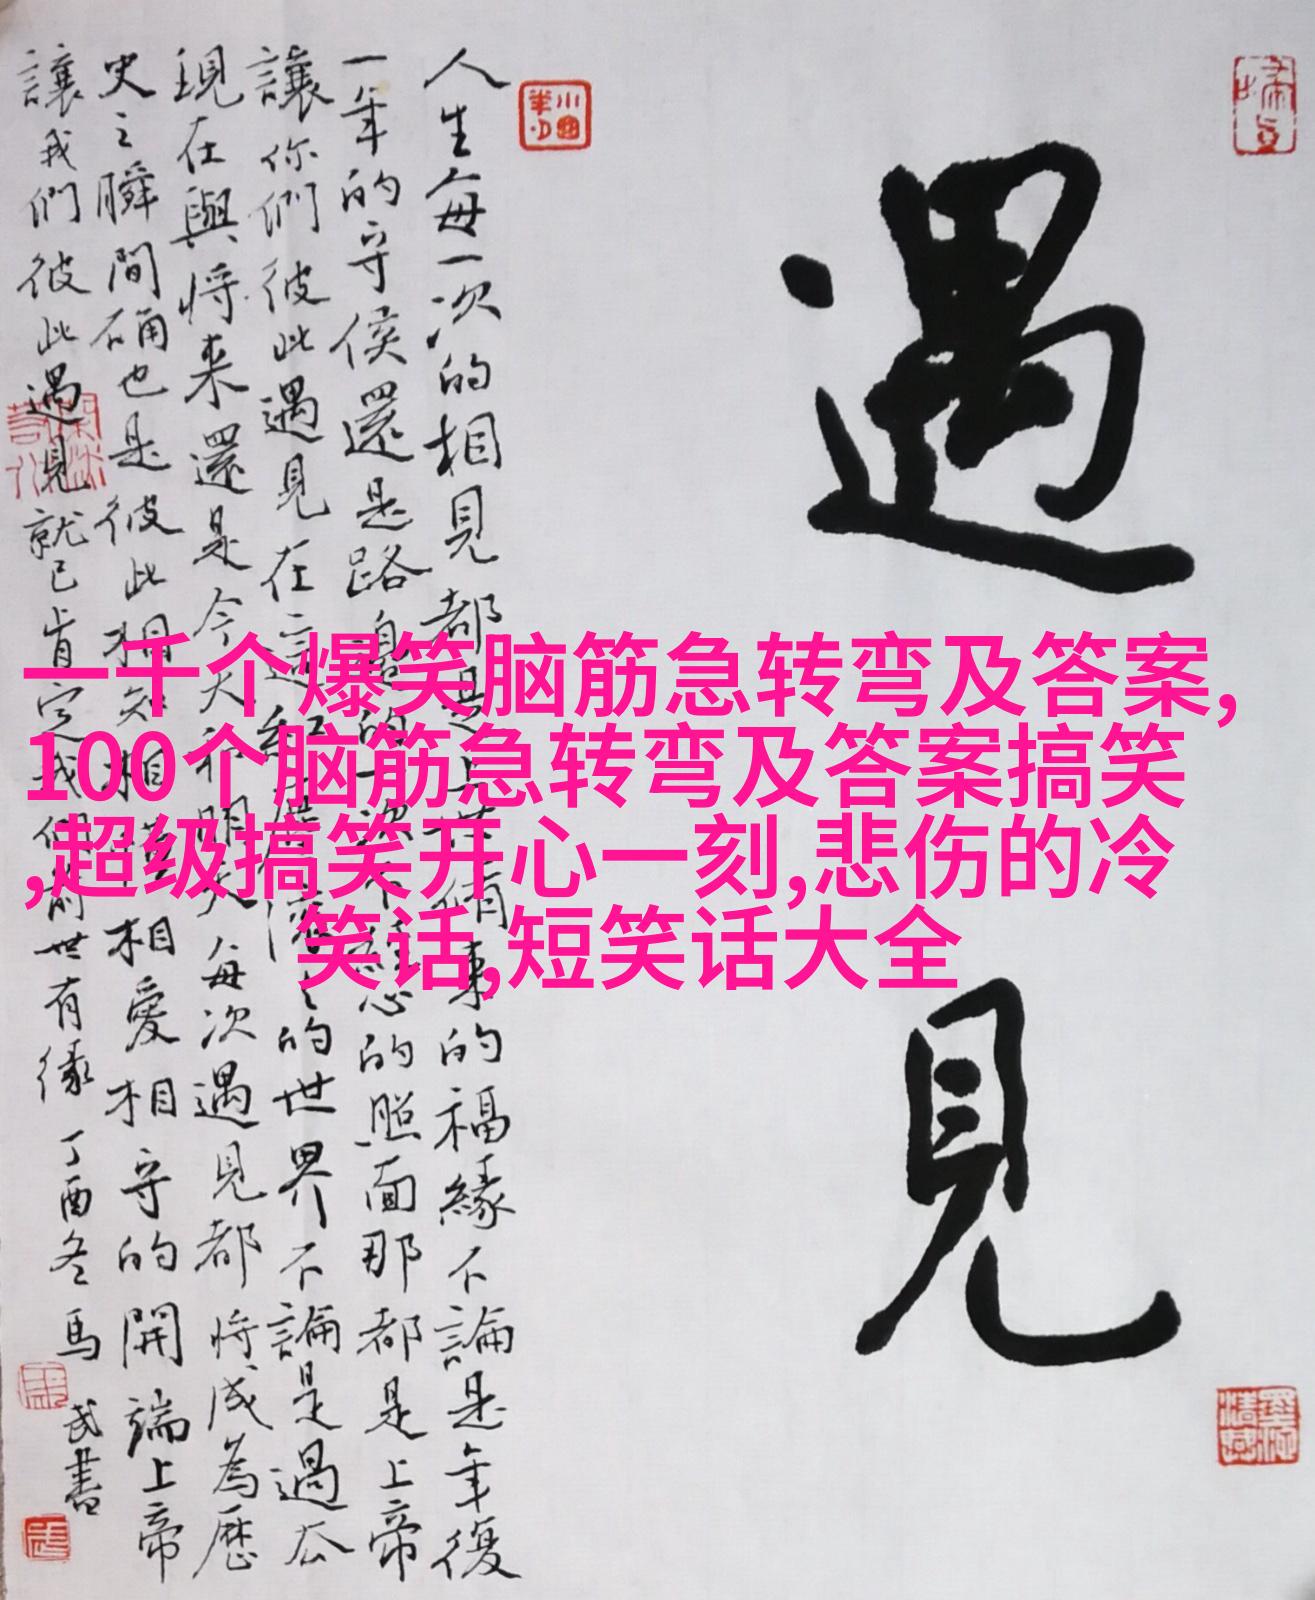 遇見
人生每一次的相見都是上世修來的福緣不論是年復
一年的守侯還是路邊的一次不經意的照面那都是上帝
讓你們彼此遇見在這紅塵滾滾的世界不論是過去
現在與將来還是今天和明天每次遇見都將成為歷
史之瞬間碻也是彼此相知相惜相愛相守的開端上帝
讓我們彼此遇見就已肯定我們前世有緣
丁酉冬馬武書
一千个爆笑脑筋急转弯及答案,
100个脑筋急转弯及答案搞笑
,超级搞笑开心一刻,悲伤的冷
笑话,短笑话大全